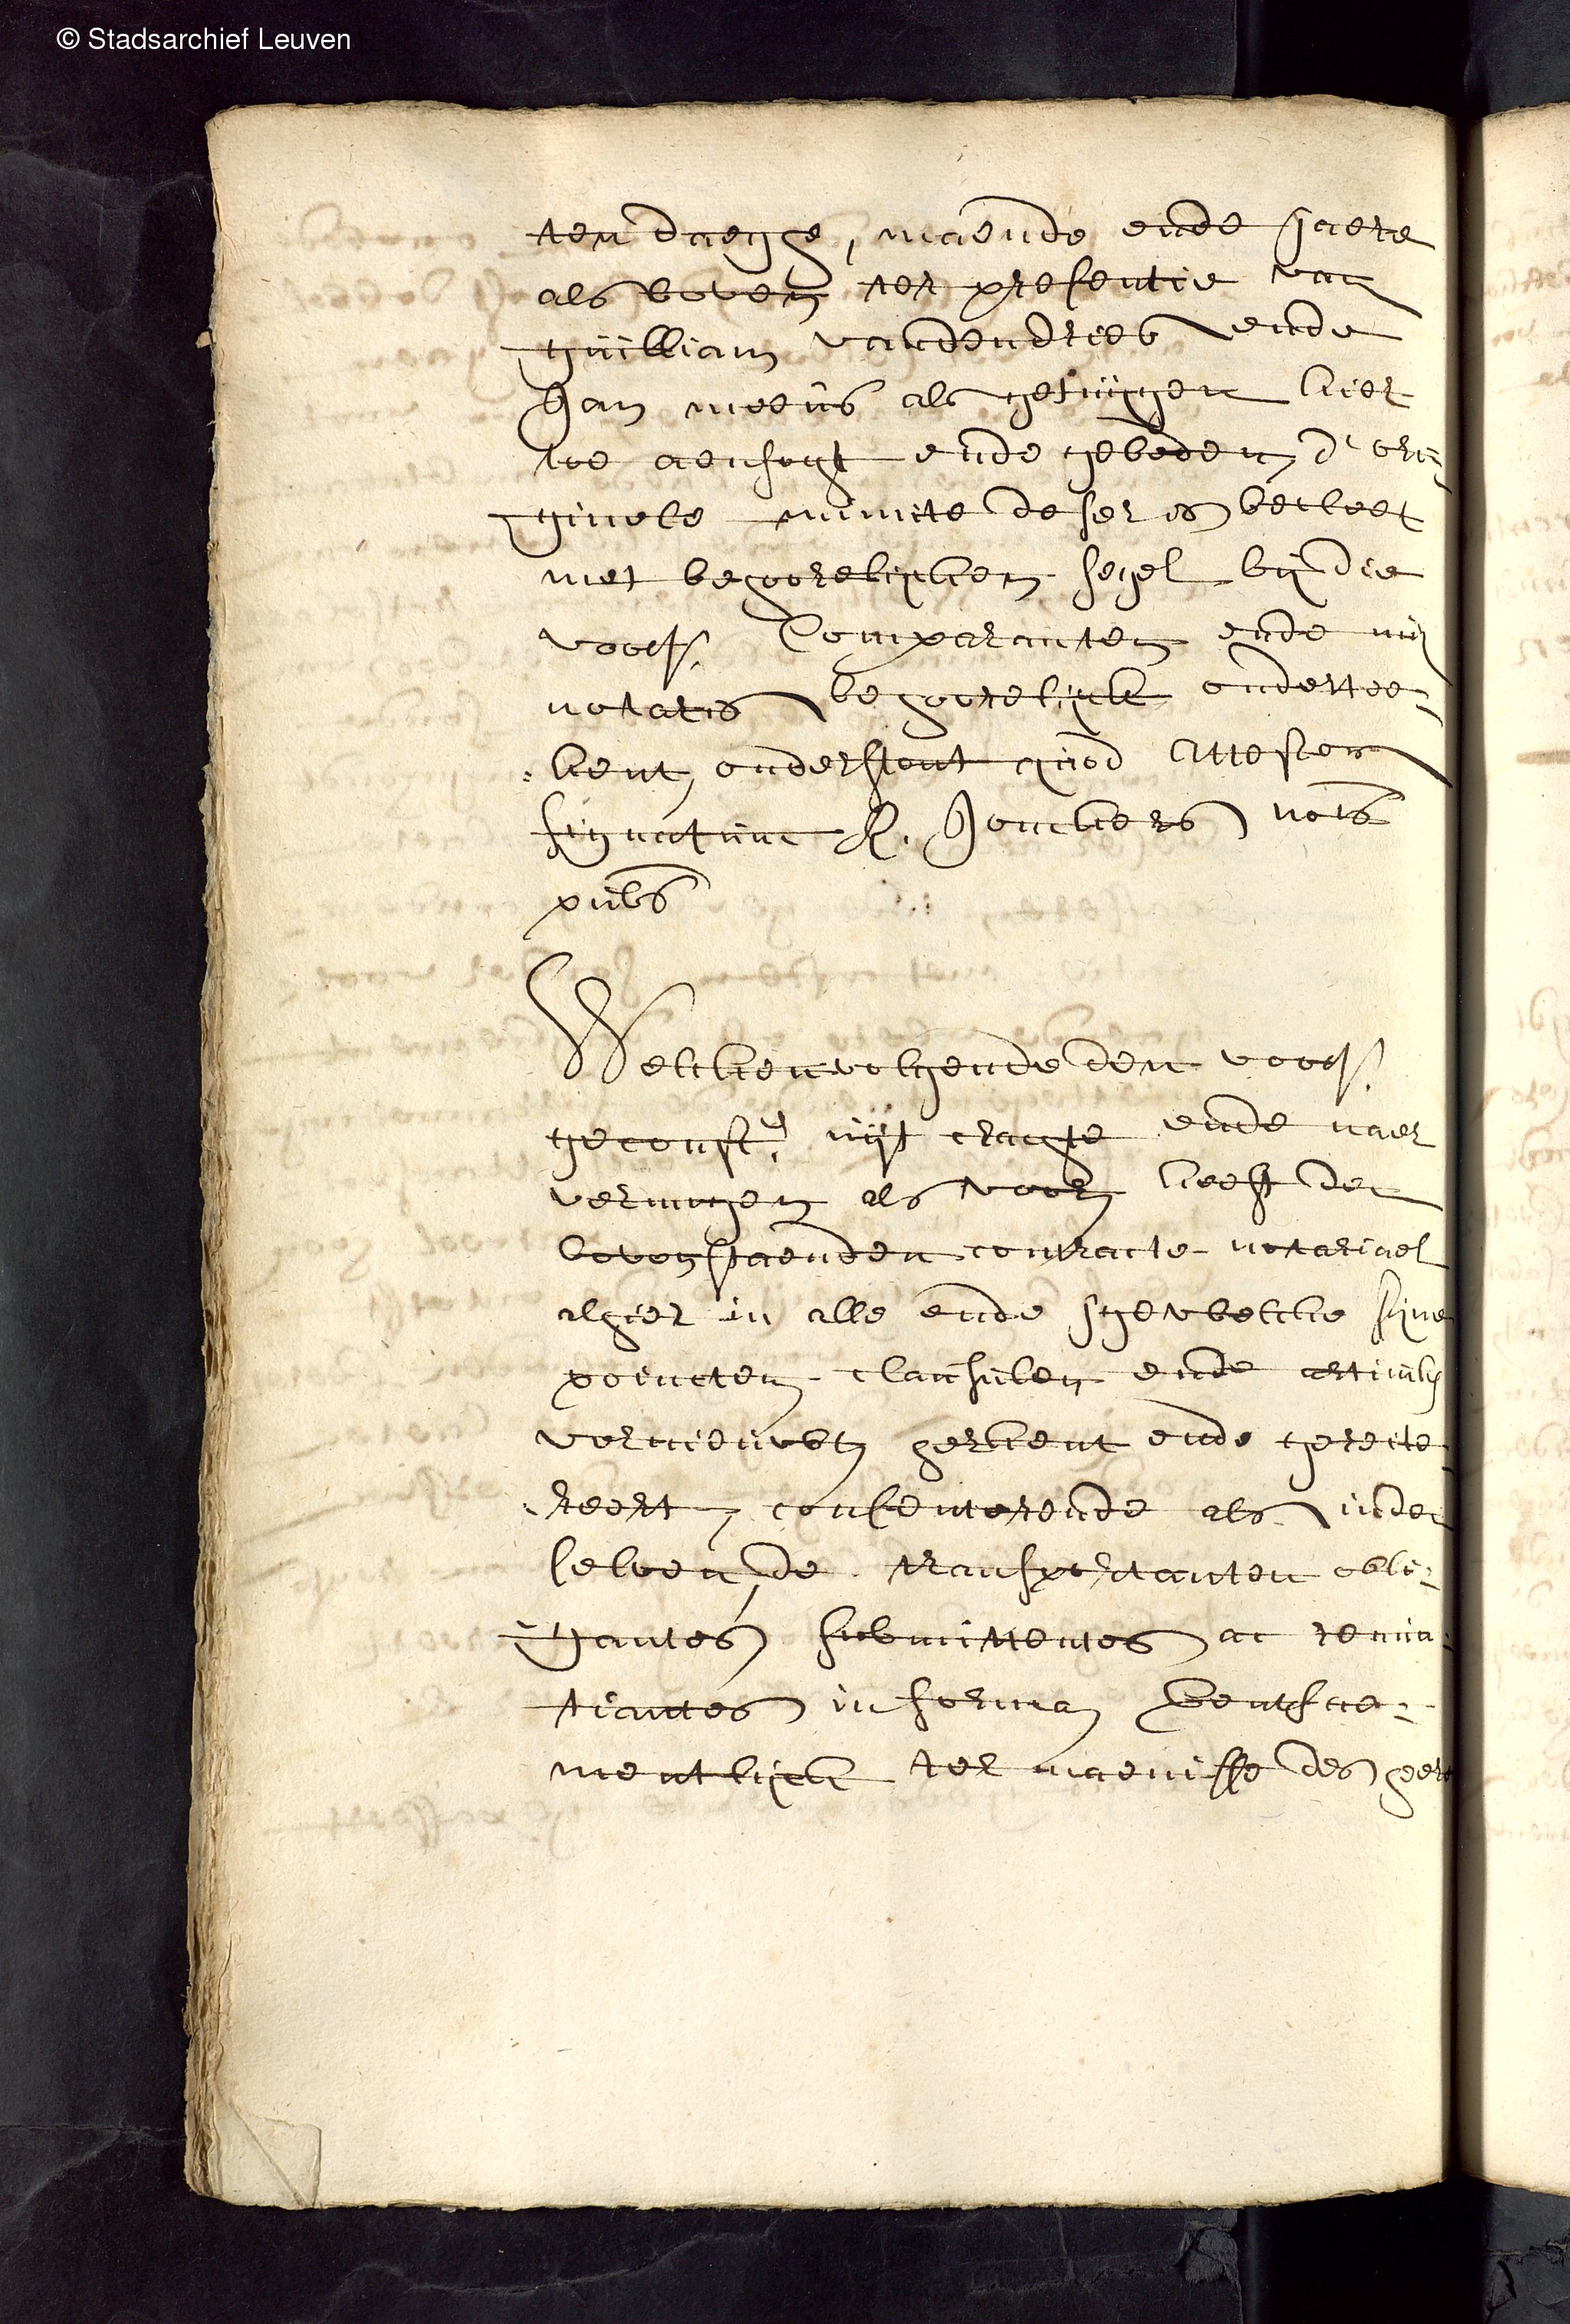 © Stadsarchief Leuven
ten daeghe, maende ende jaere
als boven ter presentie van
guilliam vandendries ende
Jan meeus als getuijgen hier
toe aensocht ende gebeden, d'ori¬
ginele minute deser is becleet
met behoorelijcken segel bij die
voors. Comparanten ende mij
notaris behoorelijck ondertee¬
kent, onderstont quod Attestor
signatum R. Jonckers nots
pubs
Welcken volgende den voors.
geconst. uijt crachte ende naer
vermogen als voor heeft den
bovenstaenden contracte notariael
alhier in alle ende jegewelcke sijne
poincten clausulen ende articulen
vernieuwt, herkent ende gereite
reert, consenterende als inden
selven, de transportanten obli¬
gantes submittentes ac renun
tiantes in forma, Gentsae¬
mentlijck ter maenisse des heere